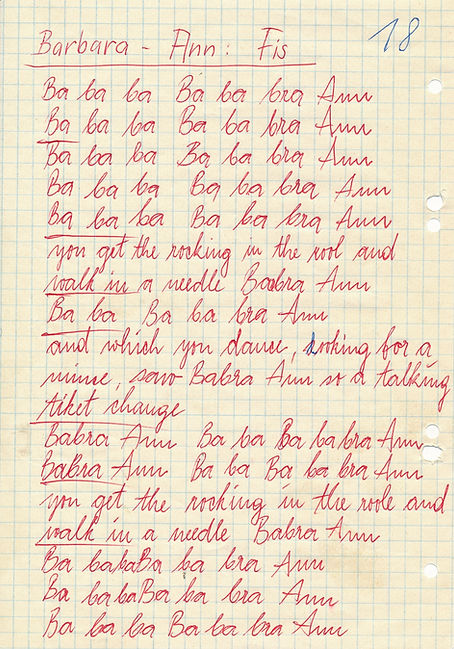 Barbara - Ann: Fis 18
Ba ba ba Ba ba bra Ann
Ba ba ba Ba ba bra Ann
Ba ba ba Ba ba bra Ann
Ba ba ba Ba ba bra Ann
Ba ba ba Ba ba bra Ann
you get the rocking in the rool and
walk in a needle Babra Ann
Ba ba Ba ba bra Ann
and which you dance, looking for a
mine, saw Babra Ann so a talking
tiket change
Babra Ann Ba ba Ba ba bra Ann
BaBra Ann Ba ba Ba ba bra Ann
you get the rocking in the roole and
walk in a needle Babra Ann
Ba babaBa ba bra Ann
Ba babaBa ba bra Ann
Ba ba ba Ba ba bra Ann